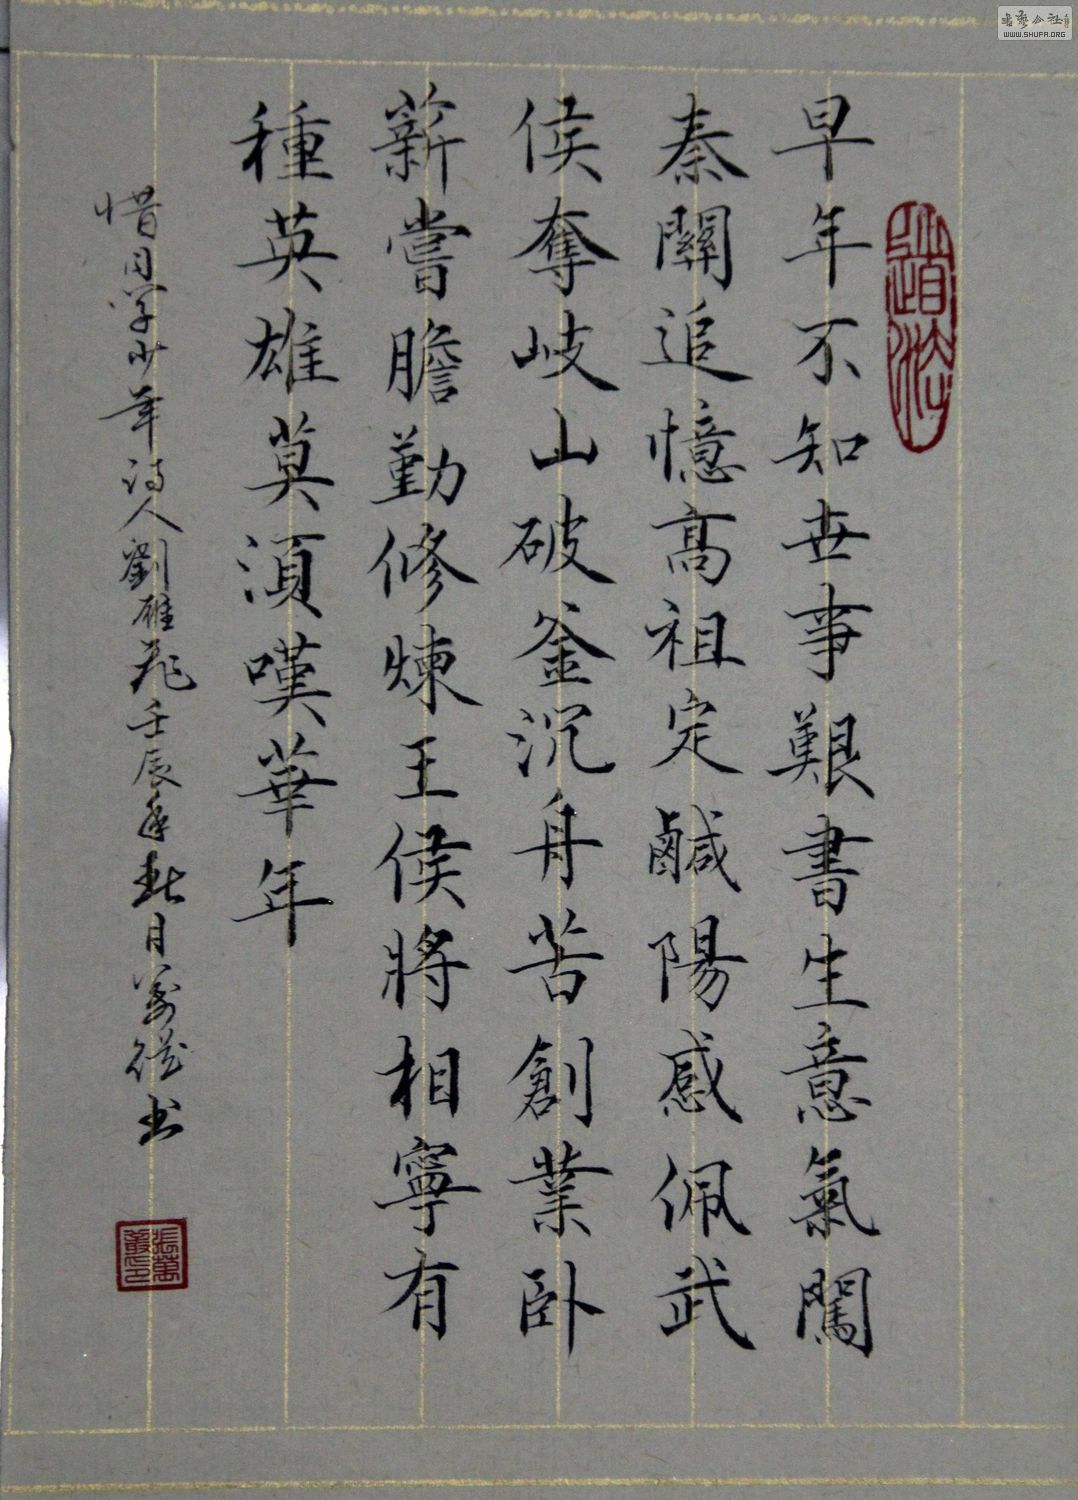 早年不知世事艱書生意氣闖
秦關追憶高祖定鹹陽感佩武
侯奪岐山破釜沉舟苦創業卧
薪嘗膽勤修煉王侯將相寧有
種英雄莫須嘆華年
惜同學少年詩人劉雄飛壬辰年秋月萬謹书
WWW.SHUFA.ORG